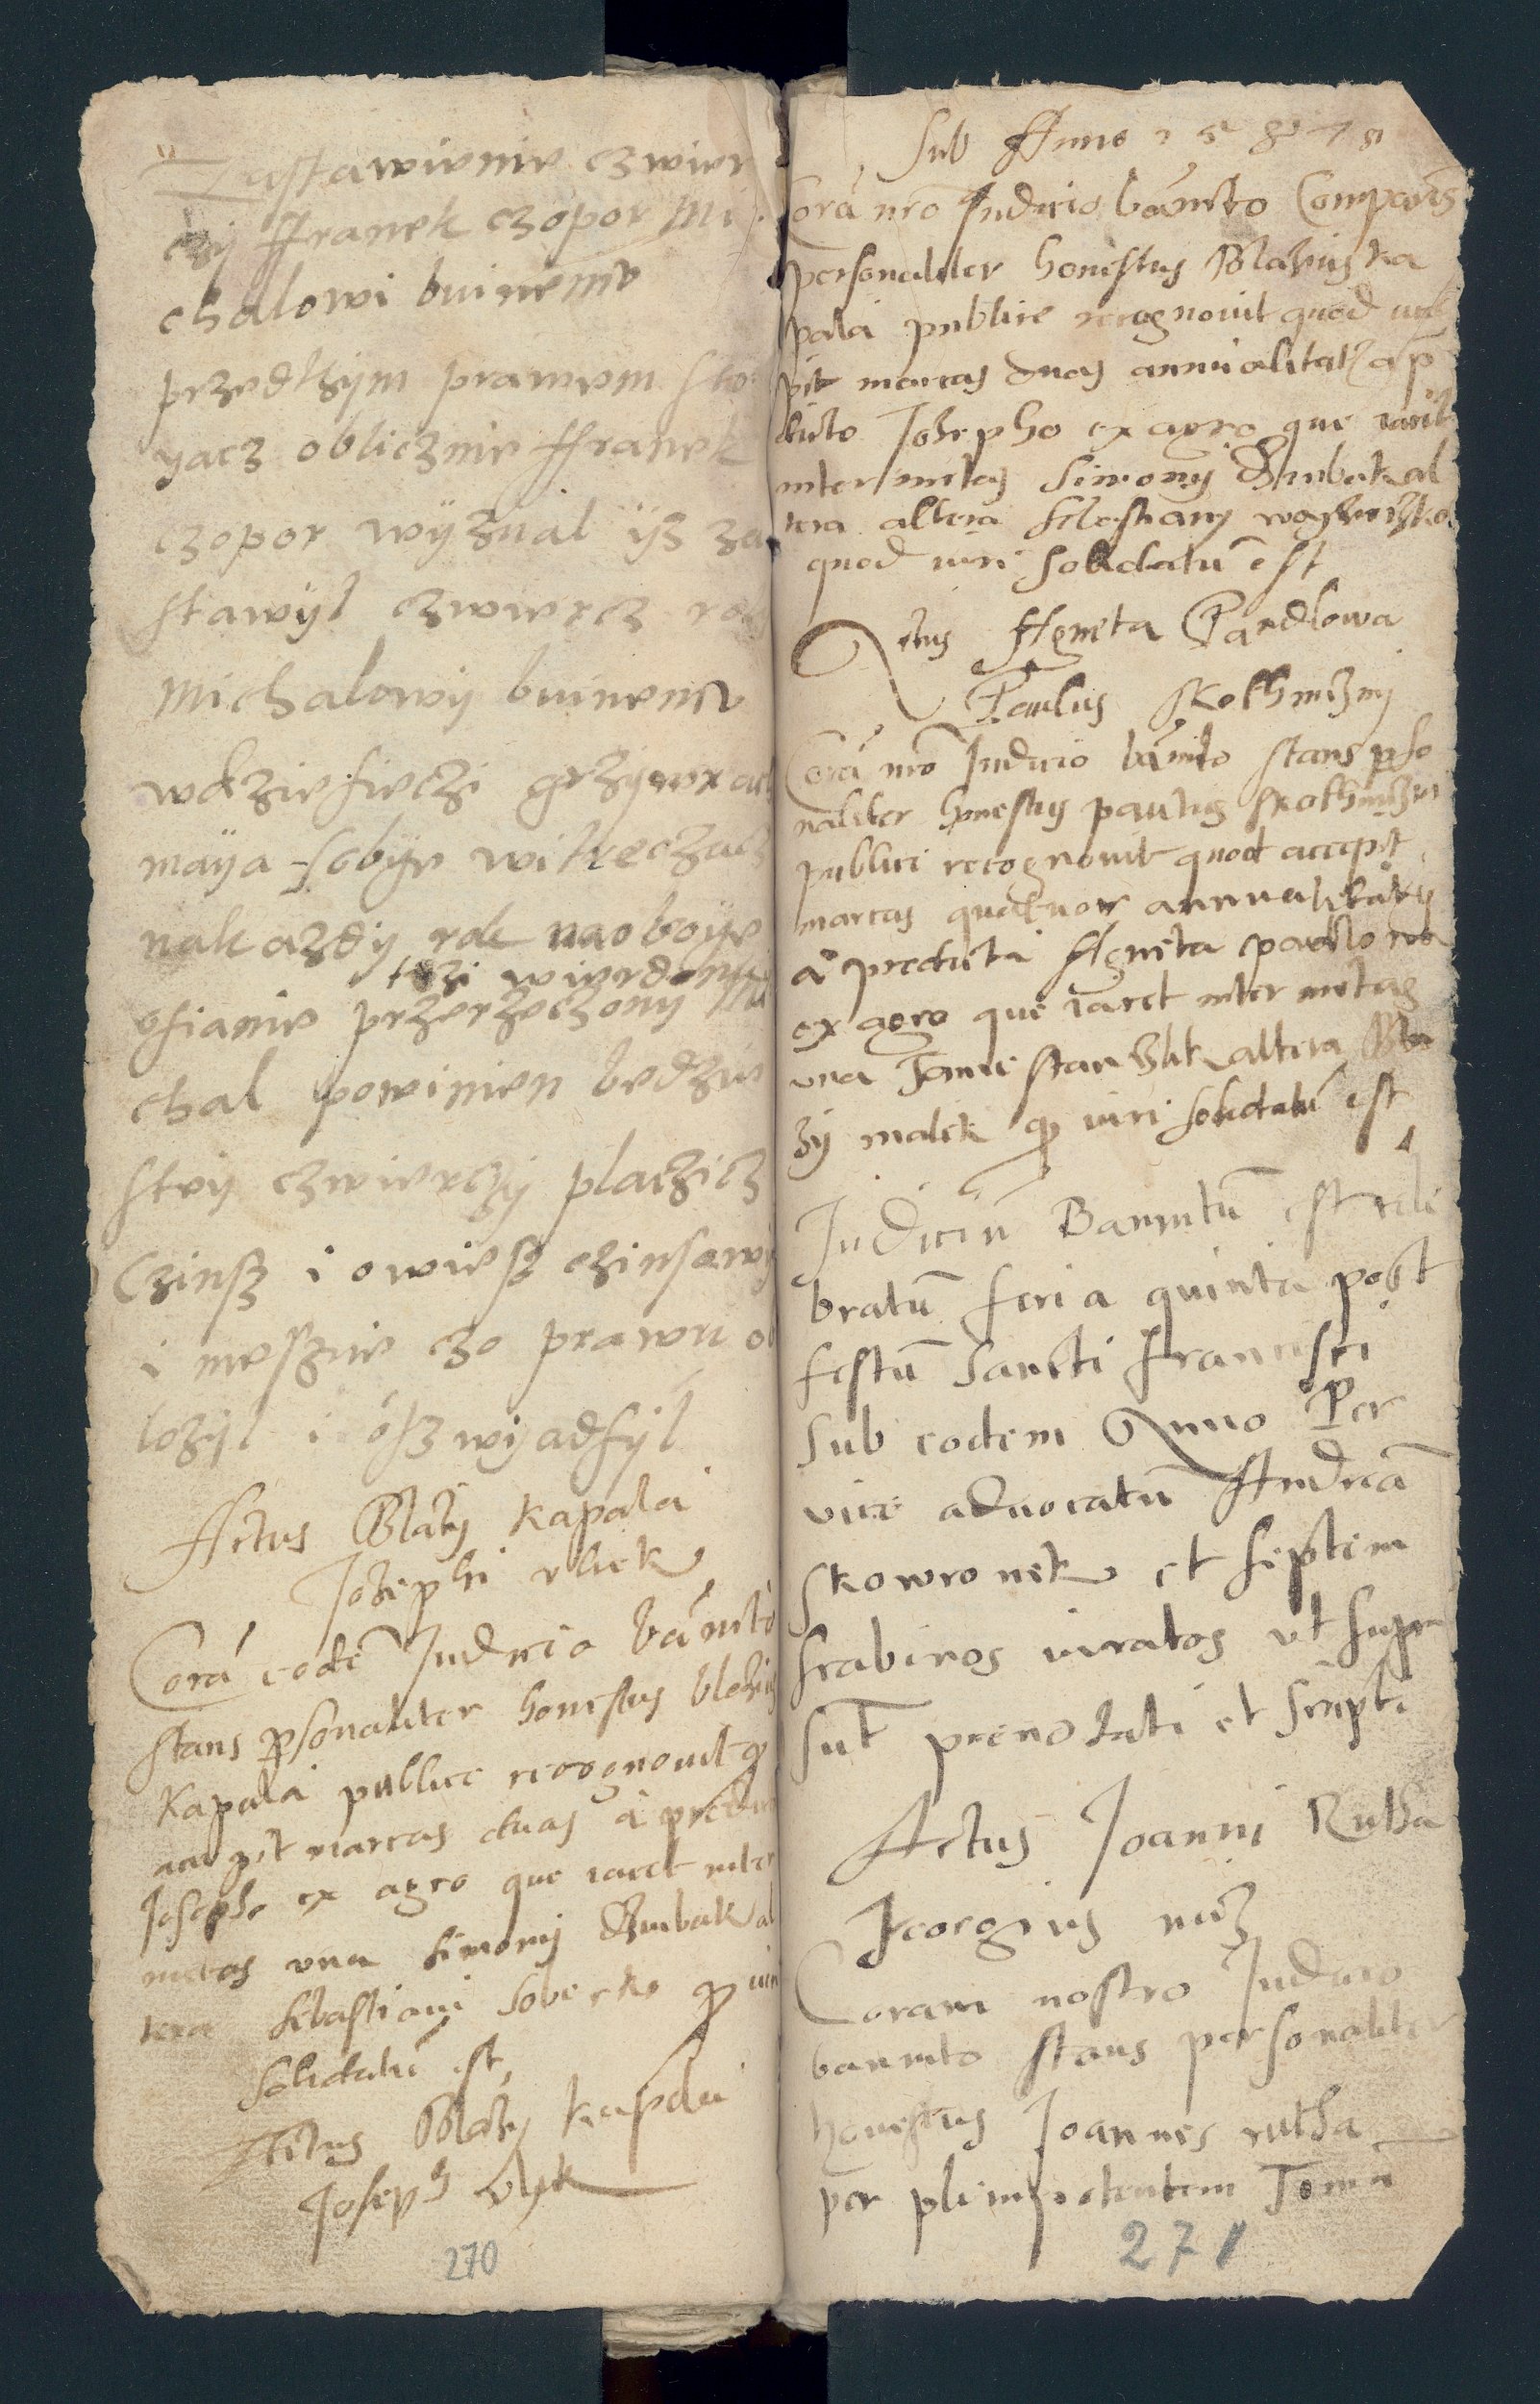 Zastawienie czwier
czÿ Ffranek czopor Mi
chalowi buinemv
przedtzÿm prawem sto
yacz oblicznie ffranek
czopor wÿznal ÿs za
stawÿl czwiercz rolÿ
Michalowÿ buinemv
wdziesieczi grzÿwnach
maÿa sobÿe witreczacz
nakazdÿ rok naoboÿe
trzi wierdonki
osianie przerzeczonÿ Mi
chal powinien bedzie
steÿ czwierczÿ placzicz
Czinsz i owiesz czinsowÿ
i meszne czo prawu ob
lozÿl i oszwÿadsÿl
Actus Blasÿ Kapala
Iosephi vlick
Corā eodē Iudicio bānito
stans psonaliter honestus blasius
Kapala publice recognouit q
accepit marcas duas a predicto
Iosepho ex agro que iacet inter
metas vna Simonÿ Dzubak al
tera Sebastiani sobierko q iuri
solidatū est
Actus Blasÿ Kapala
Ioseph vlÿk
270
Sub Anno 1587
Corā nrō Iudicio bānito Comparēs
personaliter honestus Blasius ka
pala publice recognouit quod acce
pit marcas duas annualitatz a p
dicto Iosepho ex agro que iacet
inter metas Simonÿ Dzubak al
tera altera Sebestianÿ
quod iuri solidatū est
Actus Agneta Pawlowa
Paulus Skothniznÿ
Corā nrō Iudicio bānito stans pso
naliter honestus paulus skothnizni
publice recognouit quod accepit
marcas quatuor annualitatÿ
a predicta Agneta pawlowa
ex agro que iacet inter metas
vna Tome stanzlik altera Bla
zÿ malek q iuri solidatū est
Iudiciū Banitū est cele
bratū feria quinta post
festū Sancti Francisci
sub eodem Anno Per
vice aduocatū Andreā
Skowronek et septem
scabinos iuratos vt supra
sūt prenotati et scripti
Actus Ioanni Rutha
Georgius
Coram nostro Iudicio
bannito stans personaliter
honestus Ioannes rutha
per plenipotentem Tomā
271